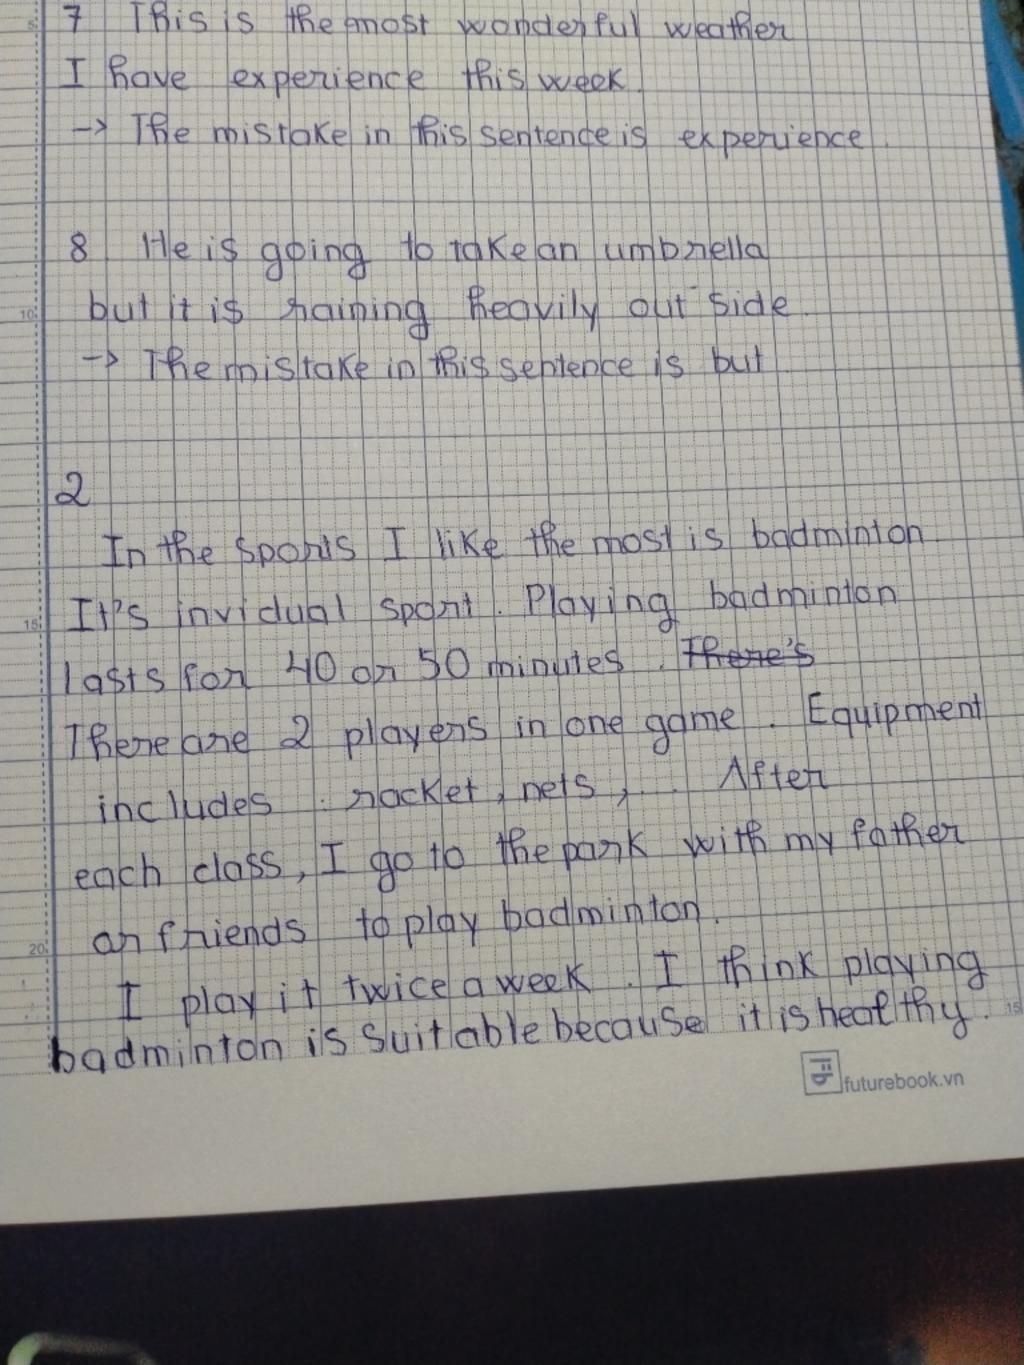 7 This is the most wonderful weather
I have experience this week.
-> The mistake in this sentence is experience.
8 He is going to take an umbrella
but it is raining heavily out side.
-> The mistake in this sentence is but
2
In the sports I like the most is badminton.
It's invidual sport. Playing badminton
lasts for 40 or 50 minutes. There's
There are 2 players in one game. Equipment
includes: racket, nets, . After
each class, I go to the park with my father
or friends to play badminton.
I play it twice a week. I think playing
badminton is suitable because it is healthy.
futurebook.vn